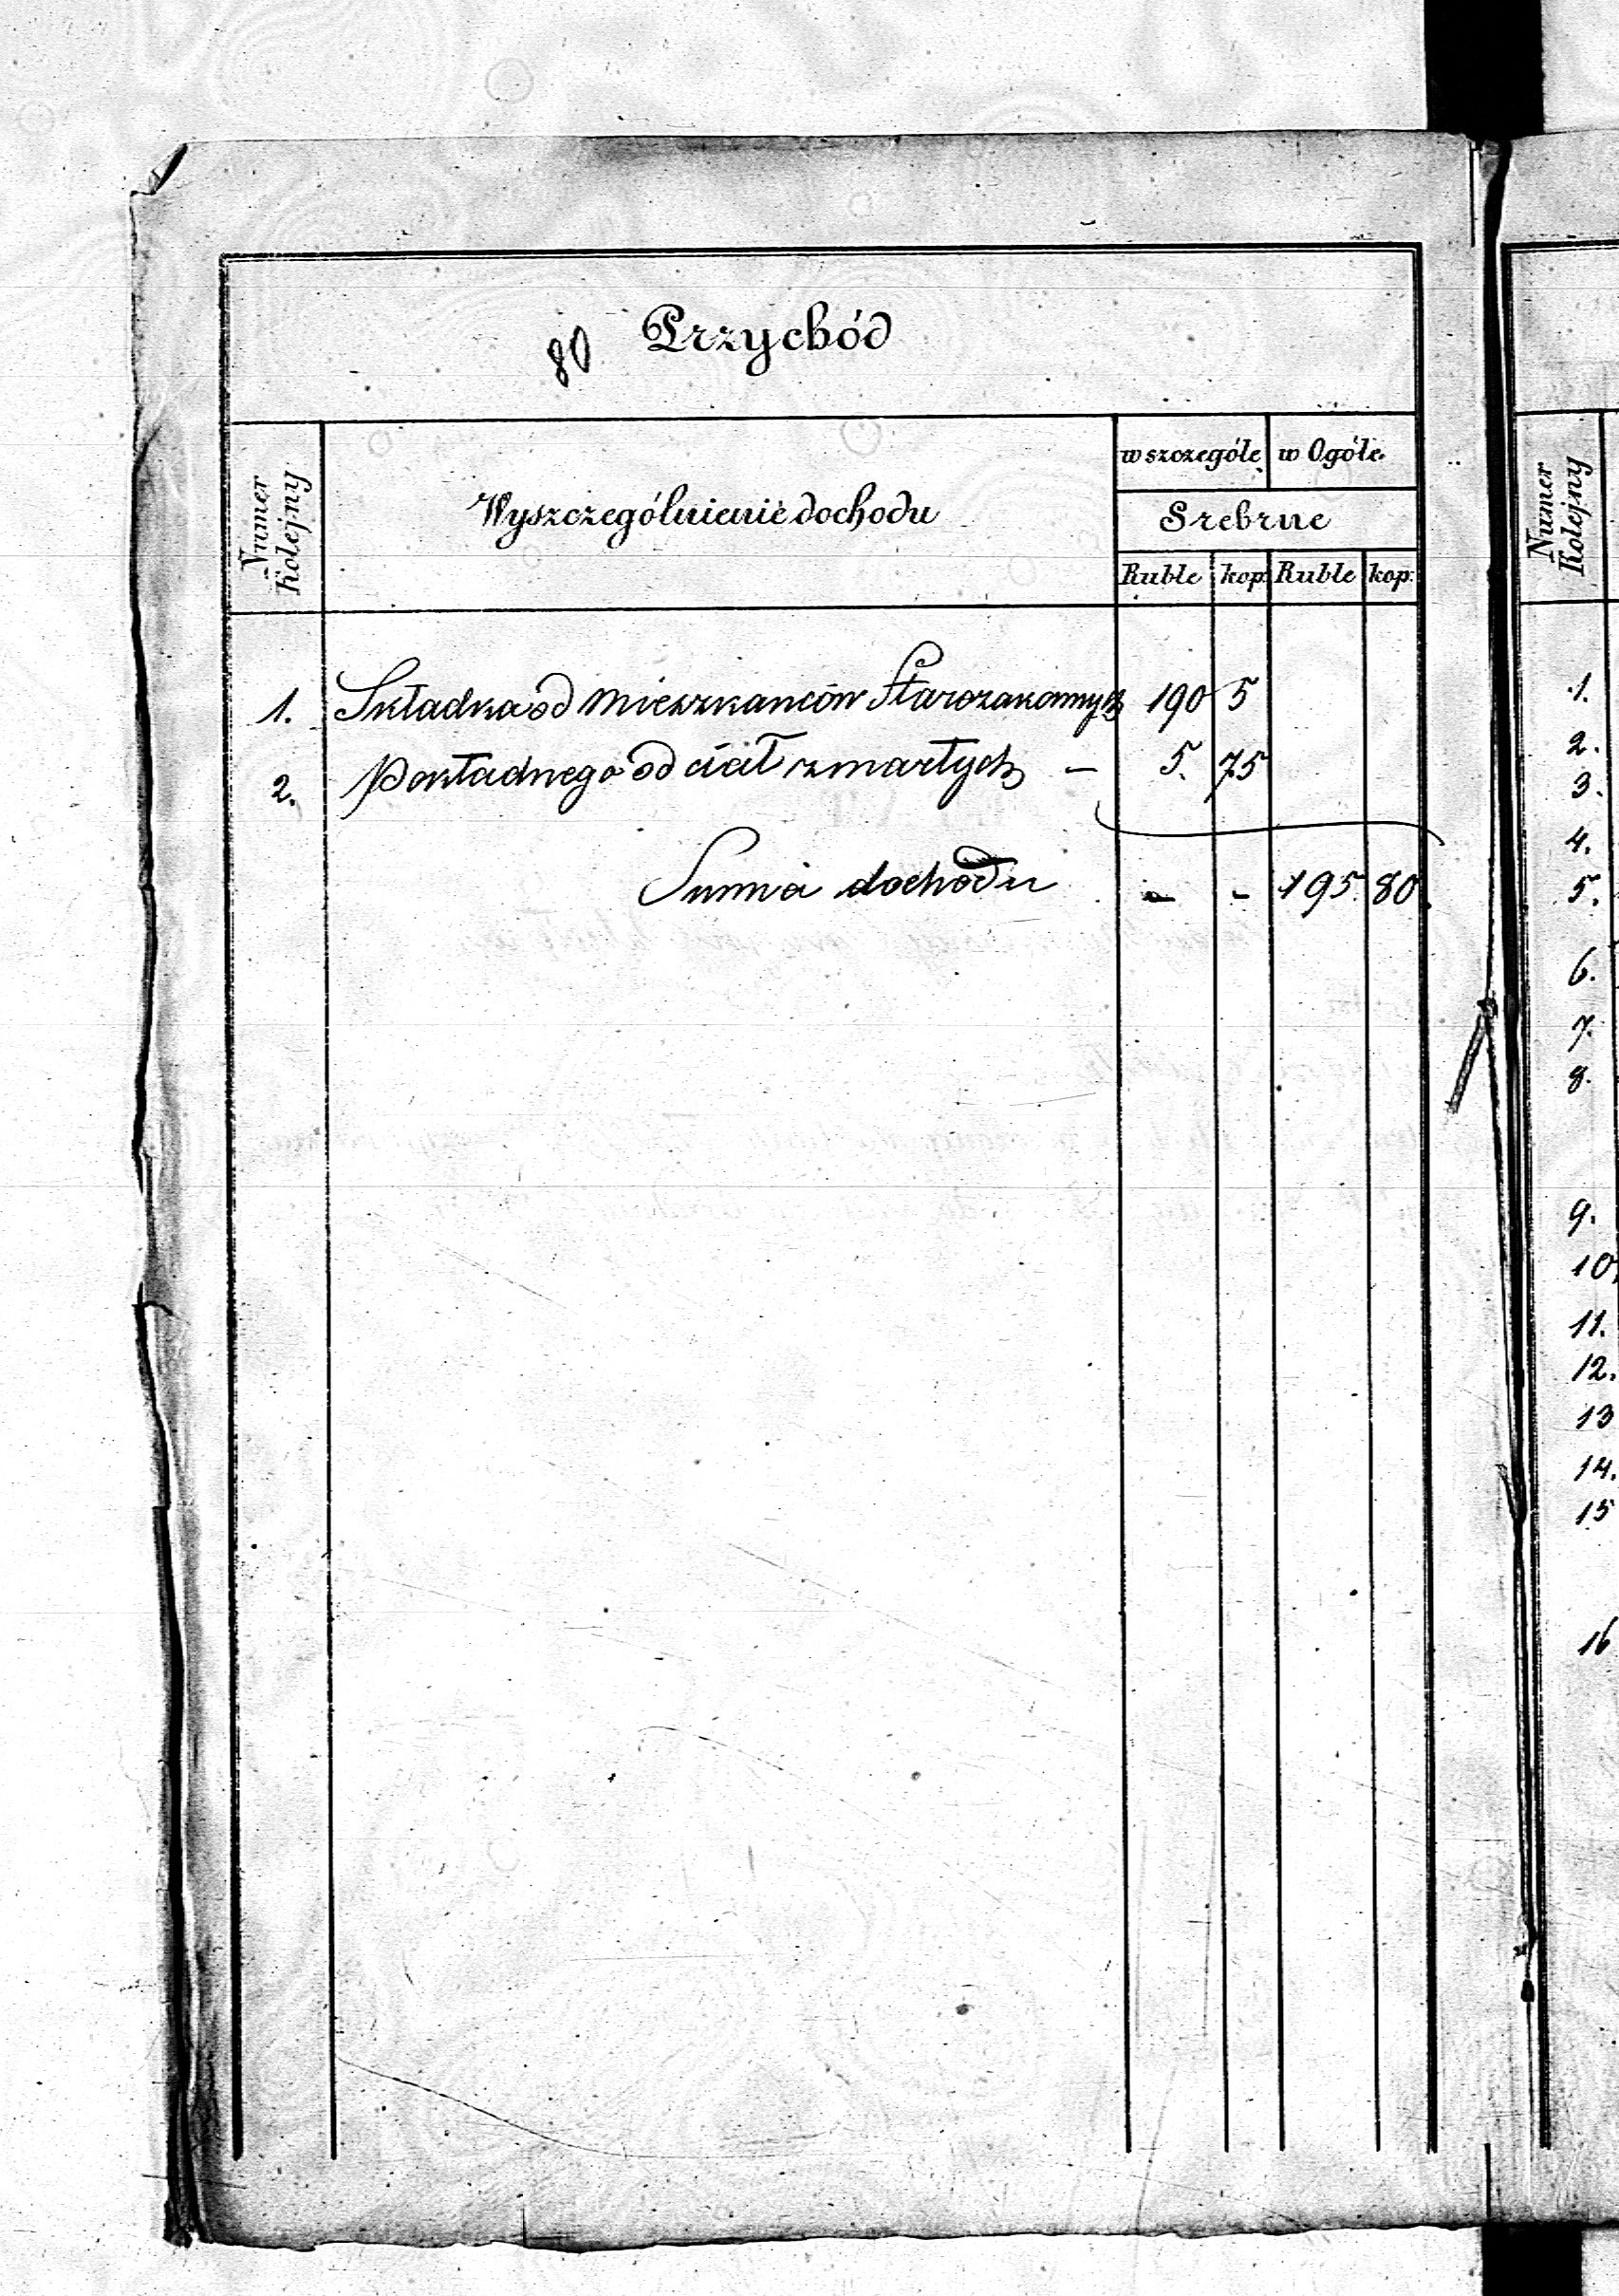 80 Przychód
Numer Kolejny
Wyszczególnienie dochodu
w szczególe w Ogóle
Srebrne
Ruble kop. Ruble kop.
1. Składka od Mieszkańców Starozakonnych 190 5
2. Pokładnego od ciał zmarłych – 5. 75
Summa dochodu - - 195. 80.
Numer Kolejny
1.
2.
3.
4.
5.
6.
7.
8.
9.
10.
11.
12.
13
14.
15
16